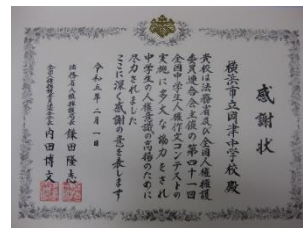 感謝状
横浜市立岡津中学校 殿
貴校は法務省及び全国人権擁護
委員連合会主催の第四十一回
全国中学生人権作文コンテストの
実施に多大な協力をされ
中学生の人権意識の高揚のために
尽力されました
ここに深く感謝の意を表します
令和五年二月一日
法務省人権擁護局長 鎌田隆志
全国人権擁護委員連合会長 内田博文